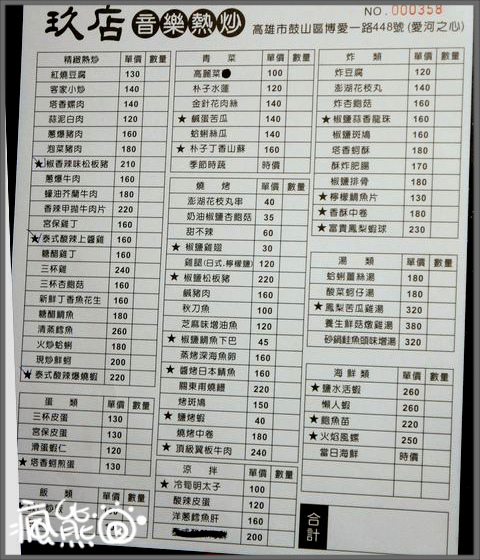 NO.000358
玖店音樂熱炒 高雄市鼓山區博愛一路448號 (愛河之心)
精緻熱炒 單價 數量
紅燒豆腐 130
客家小炒 140
塔香螺肉 140
蒜泥白肉 120
蔥爆豬肉 160
泡菜豬肉 180
★椒香辣味松板豬 210
蔥爆牛肉 160
蠔油芥蘭牛肉 160
香辣甲拋牛肉片 220
宮保雞丁 160
★泰式酸辣上醬雞 160
糖醋雞丁 160
三杯雞 240
三杯杏鮑菇 160
新鮮丁香魚花生 160
糖醋鯛魚 180
清蒸鱈魚 260
火炒蛤蜊 180
現炒鮮蚵 200
★泰式酸辣爆燒蝦 220
蛋類 單價 數量
三杯皮蛋 130
宮保皮蛋 130
滑蛋蝦仁 130
★塔香蚵煎蛋 130
飯類 單價 數量
瘋熊
青菜 單價 數量
高麗菜 100
朴子水蓮 120
金針花肉絲 140
★鹹蛋苦瓜 140
蛤蜊絲瓜 140
★朴子丁香山蘇 160
季節時蔬 時價
燒烤 單價 數量
澎湖花枝丸串 40
奶油椒鹽杏鮑菇 35
甜不辣 60
★椒鹽雞翅 30
雞腿(日式.檸檬鹽) 120
★椒鹽松板豬 220
鹹豬肉 160
秋刀魚 100
芝麻味增油魚 120
★椒鹽鯛魚下巴 45
蒸烤深海魚卵 160
★醬烤日本鯖魚 160
關東甫燒鰻 220
烤斑鳩 150
★鹽烤蝦 40
燒烤中卷 180
★頂級翼板牛肉 240
涼拌 單價 數量
★冷筍明太子 100
酸辣皮蛋 120
洋蔥鱈魚肝 160
200
炸類 單價 數量
炸豆腐 120
澎湖花枝丸 140
炸杏鮑菇 160
★椒鹽蒜香龍珠 160
椒鹽斑鳩 160
塔香蚵酥 180
酥炸肥腸 170
椒鹽排骨 180
★檸檬鯛魚片 130
★香酥中卷 180
★富貴鳳梨蝦球 230
湯類 單價 數量
蛤蜊薑絲湯 180
酸菜蚵仔湯 180
★鳳梨苦瓜雞湯 320
養生鮮菇燉雞湯 380
砂鍋鮭魚頭味增湯 320
海鮮類 單價 數量
★鹽水活蝦 260
懶人蝦 260
★鮑魚苗 220
★火焰風螺 250
當日海鮮 時價
合計